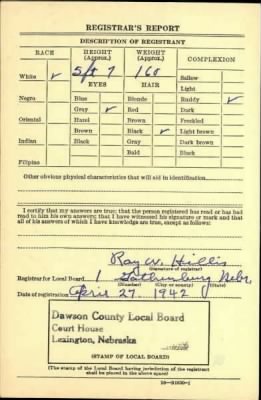 REGISTRAR'S REPORT
DESCRIPTION OF REGISTRANT
RACE HEIGHT (Approx.) WEIGHT (Approx.) COMPLEXION
White ✓ 5 ft 7 160 Sallow
Light
EYES HAIR
Negro Blue Blonde Ruddy ✓
Gray ✓ Red Dark
Oriental Hazel Brown Freckled
Brown Black ✓ Light brown
Indian Black Gray Dark brown
Bald Black
Filipino
Other obvious physical characteristics that will aid in identification
I certify that my answers are true; that the person registered has read or has had
read to him his own answers; that I have witnessed his signature or mark and that
all of his answers of which I have knowledge are true, except as follows:
Ray W. Hillis
(Signature of registrar)
Registrar for Local Board 1 Gothenburg Nebr.
(Number) (City or county) (State)
Date of registration April 27, 1942
Dawson County Local Board
Court House
Lexington, Nebraska
(STAMP OF LOCAL BOARD)
(The stamp of the Local Board having jurisdiction of the registrant
shall be placed in the above space)